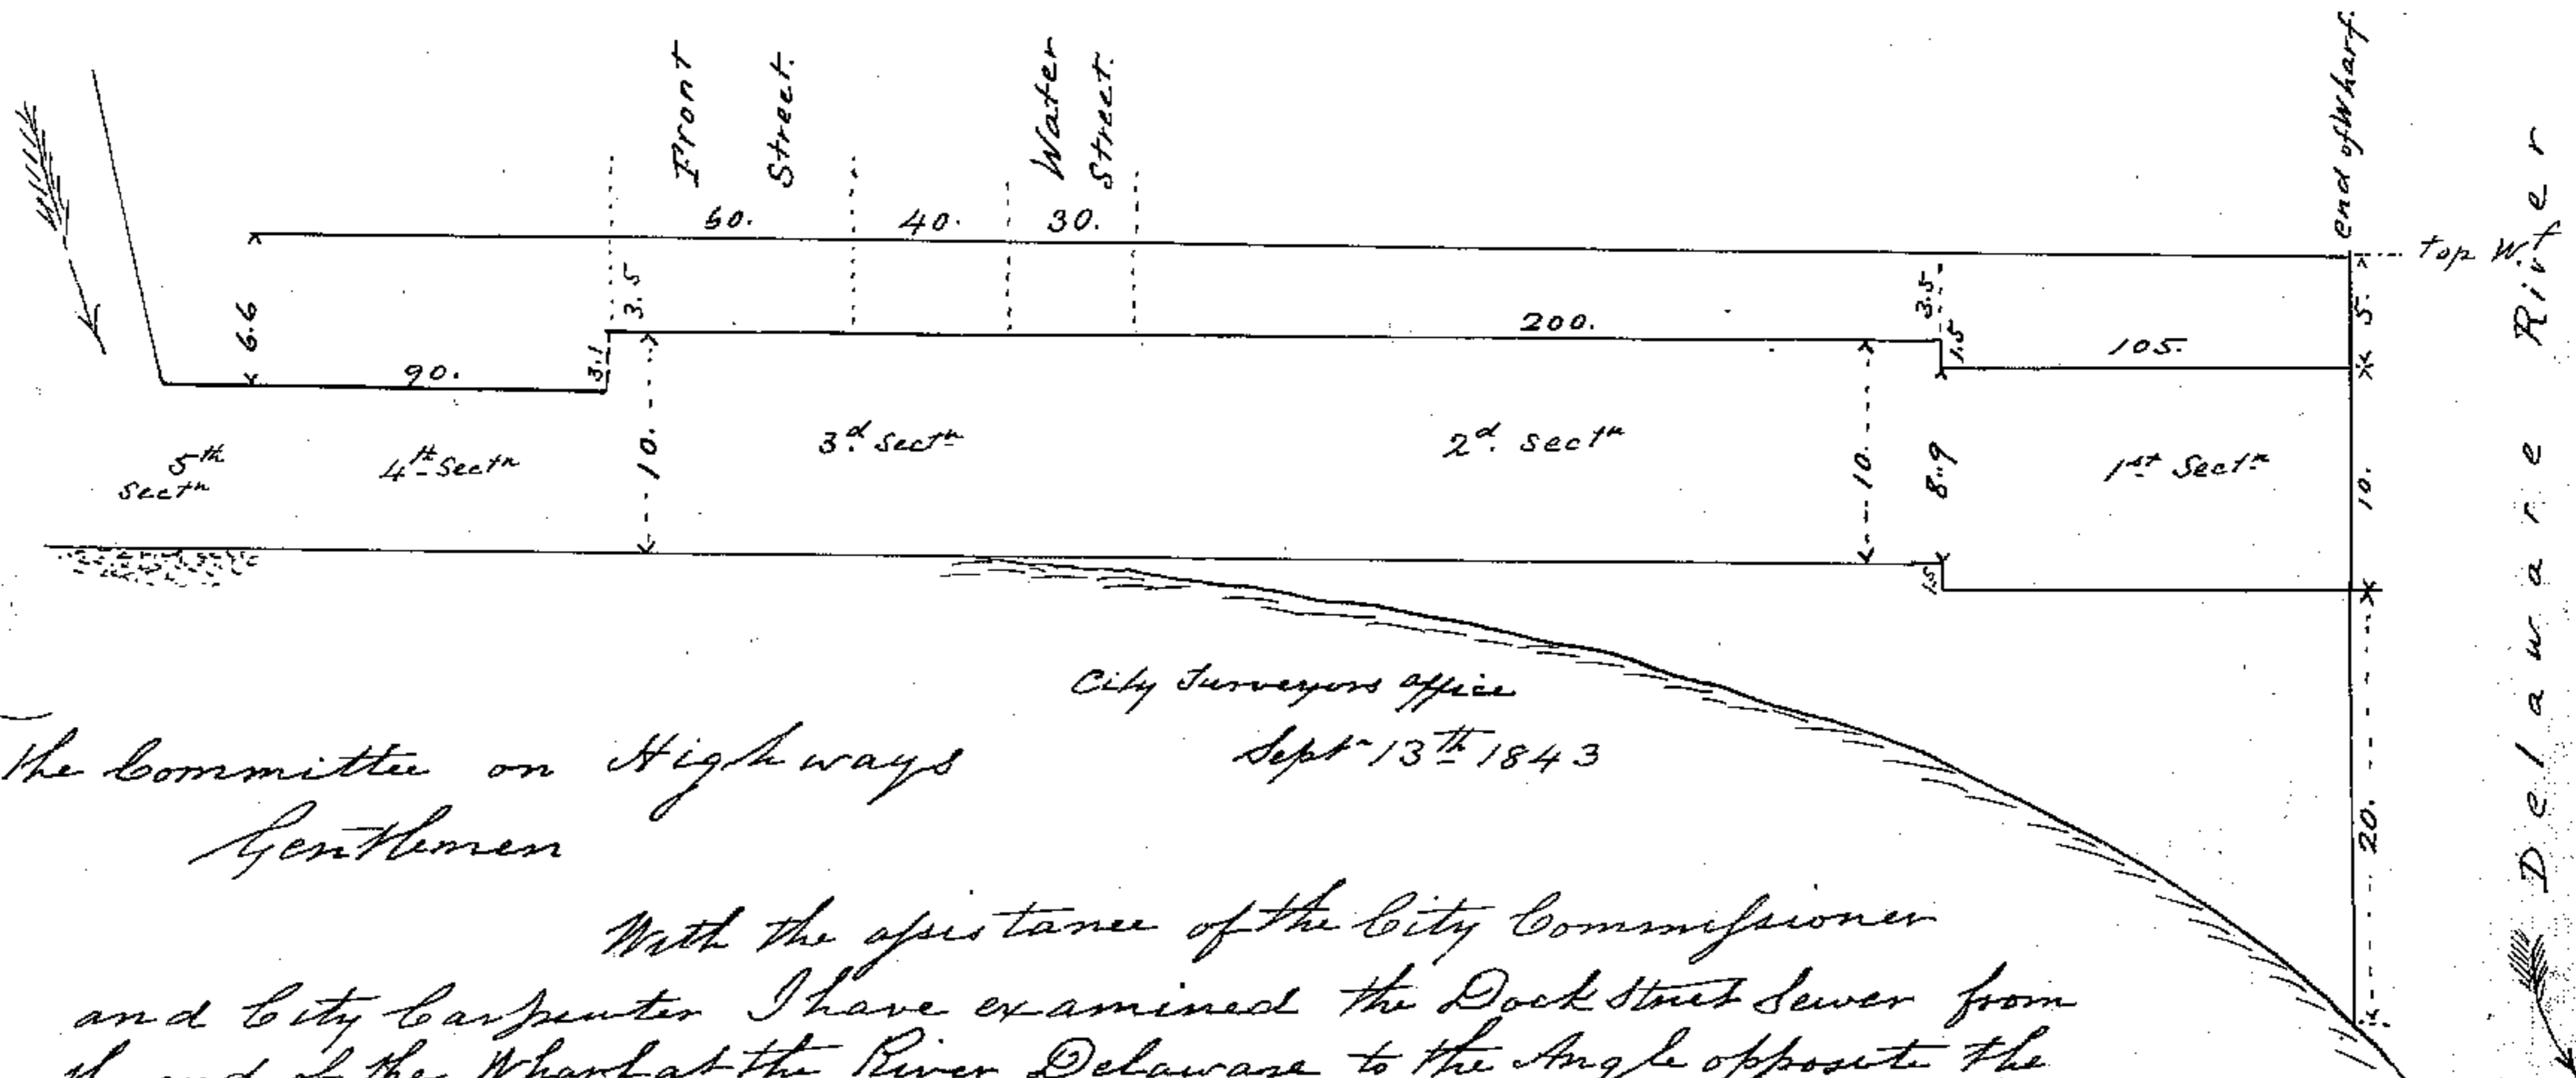 Front
Street.
Water
Street.
end of Wharf.
60.
40.
30.
top W.
Delaware River
6.6
3.5
3.5
5.
90.
3.1
200.
1.5
105.
5th
Sectn
4th Sectn
10.
3d Sectn
2d. Sectn
10.
8.9
1st Sectn
10.
1.5
20.
City Surveyors office
Septr 13th 1843
The Committee on Highways
Gentlemen
With the assistance of the City Commissioner
and City Carpenter I have examined the Dock Street Sewer from
end of the Wharf at the River Delaware to the Angle opposite the